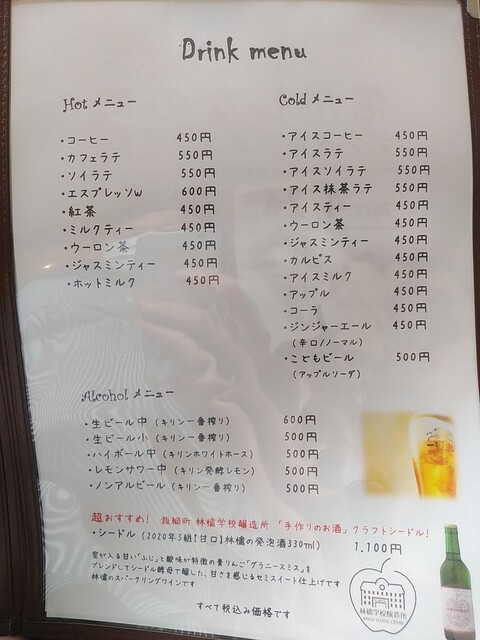 Drink menu
Hot メニュー
・コーヒー 450円
・カフェラテ 550円
・ソイラテ 550円
・エスプレッソW 600円
・紅茶 450円
・ミルクティー 450円
・ウーロン茶 450円
・ジャスミンティー 450円
・ホットミルク 450円
Cold メニュー
・アイスコーヒー 450円
・アイスラテ 550円
・アイスソイラテ 550円
・アイス抹茶ラテ 550円
・アイスティー 450円
・ウーロン茶 450円
・ジャスミンティー 450円
・カルピス 450円
・アイスミルク 450円
・アップル 450円
・コーラ 450円
・ジンジャーエール 450円
(辛口/ノーマル)
・こどもビール 500円
(アップルソーダ)
Alcohol メニュー
・生ビール中 (キリン一番搾り) 600円
・生ビール小 (キリン一番搾り) 500円
・ハイボール中 (キリンホワイトホース) 500円
・レモンサワー中 (キリン発酵レモン) 500円
・ノンアルビール (キリン一番搾り) 500円
超おすすめ! 飯綱町 林檎学校醸造所 「手作りのお酒」クラフトシードル!
・シードル (2020年5組【甘口】林檎の発泡酒330ml) 1,100円
蜜が入る甘い「ふじ」と酸味が特徴の青りんご「グラニースミス」を
ブレンドしてシードル酵母で醸した、甘さを感じるセミスイート仕上げです
林檎のスパークリングワインです
すべて税込み価格です
林檎学校醸造所
RINGO SCHOOL CIDERY